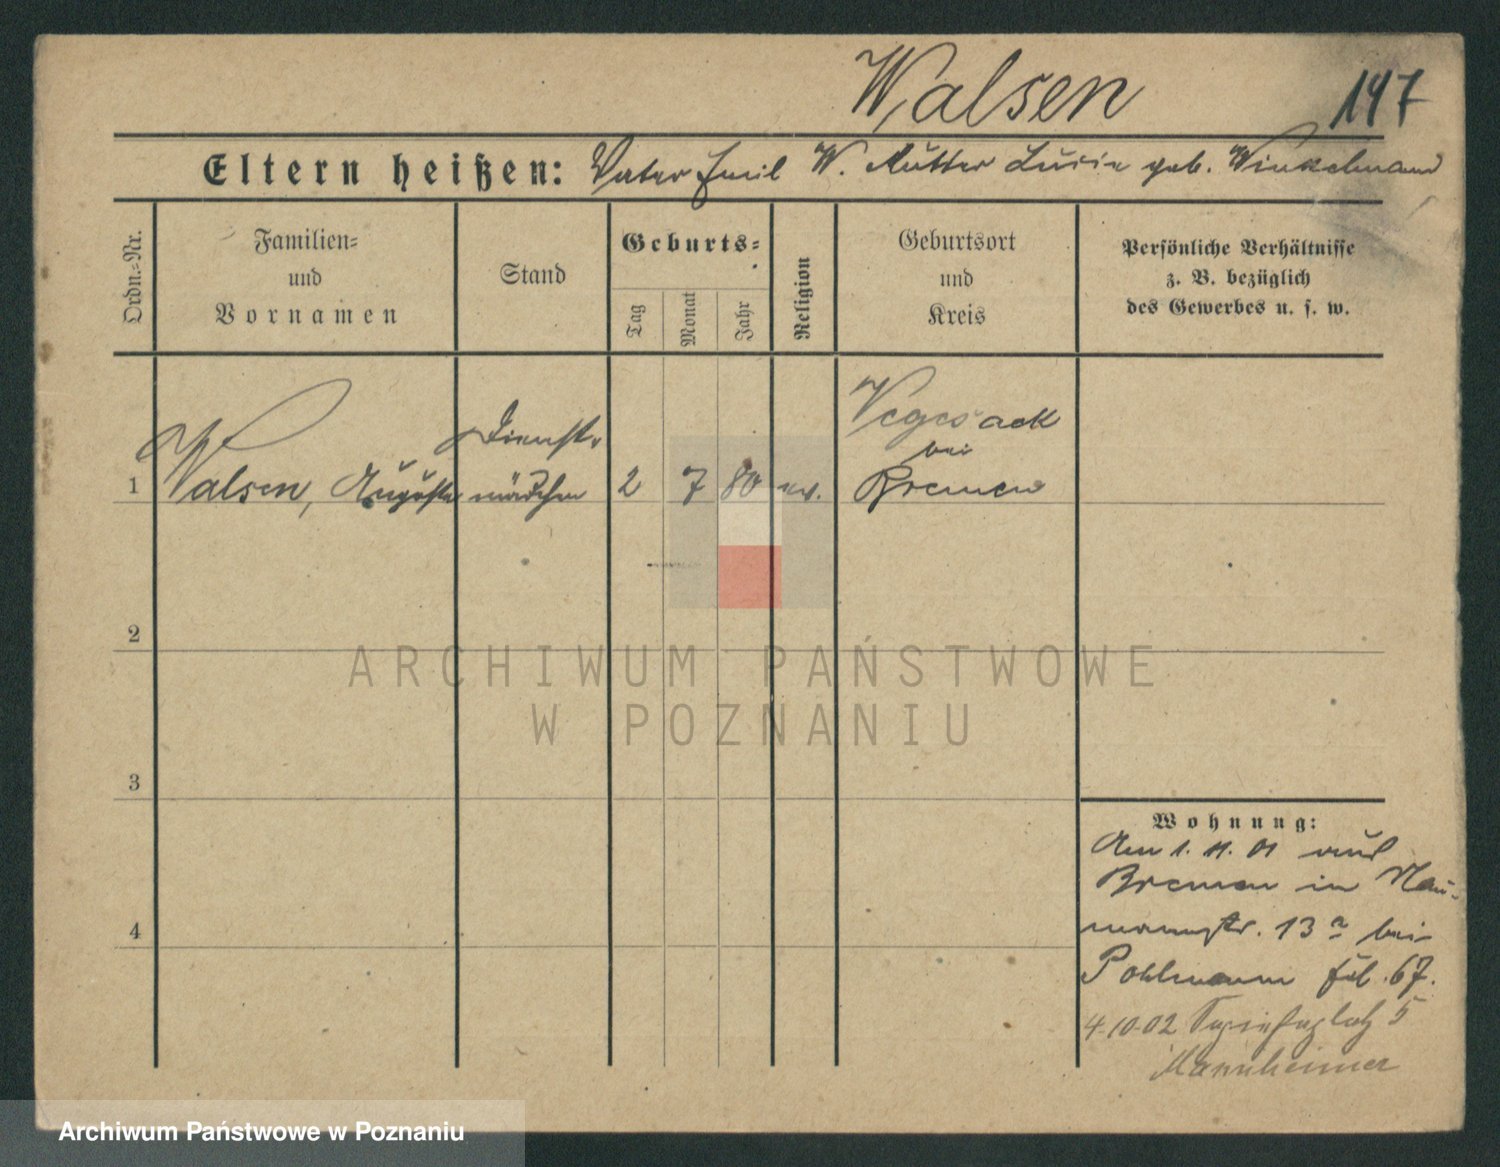 Walsen 147
Eltern heißen: Vater Emil W. Mutter Lucie geb. Winkelmann
Ordn.=Nr.
Familien=
und
Vornamen
Stand
Geburts=
Tag
Monat
Jahr
Religion
Geburtsort
und
Kreis
Persönliche Verhältnisse
z. B. bezüglich
des Gewerbes u. s. w.
1 Walsen, Auguste
Dienst-
mädchen
2 7 80 ev.
Vegesack
bei
Bremen
2
3
4
ARCHIWUM PAŃSTWOWE
W POZNANIU
Wohnung:
Am 1. 11. 01 aus
Bremen in Nau-
mannstr. 13a bei
Pohlmann 67.
4-10-02 5
Mannheimer
Archiwum Państwowe w Poznaniu